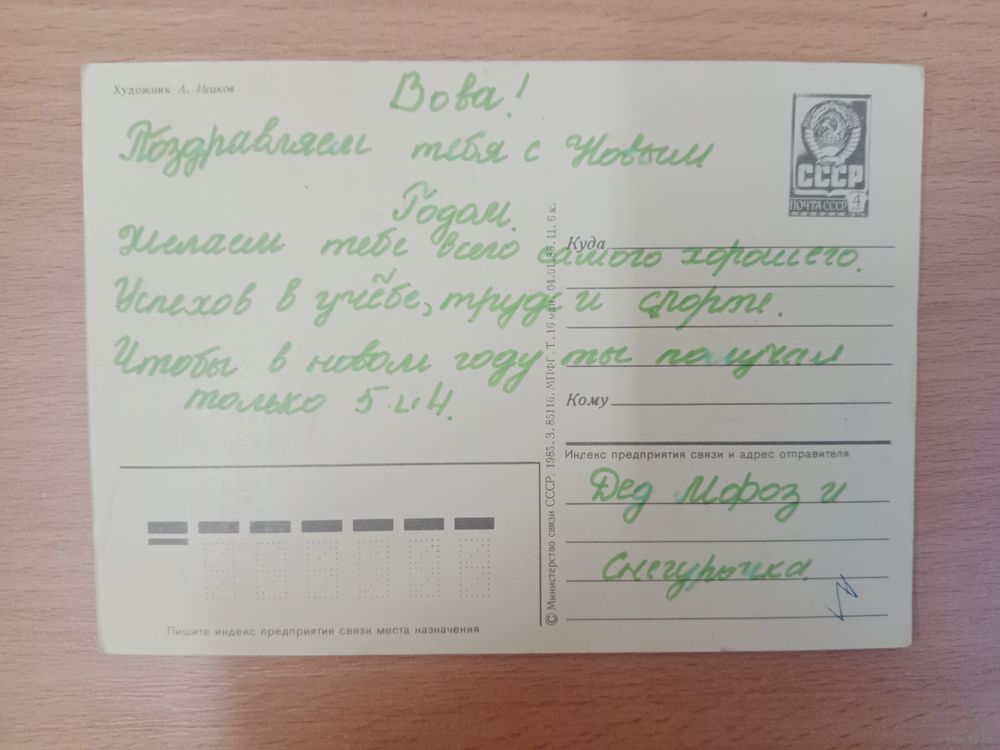 Художник А. Исаков
Вова!
Поздравляем тебя с Новым
Годом.
Желаем тебе всего самого хорошего.
Успехов в учёбе, труде и спорте.
Чтобы в новом году ты получал
только 5 и 4.
СССР
ПОЧТА СССР 4
Куда
Кому
Индекс предприятия связи и адрес отправителя
Дед Мороз и
Снегурочка.
© Министерство связи СССР, 1985. З. 85116. МПФГ. Т. 16 млн. 04.01.85. Ц. 6 к.
Пишите индекс предприятия связи места назначения